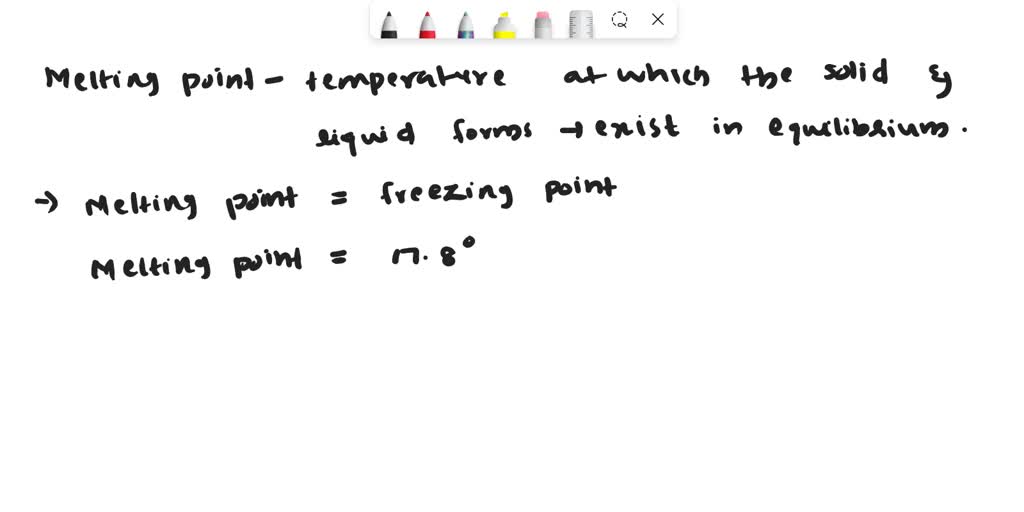 Melting point - temperature at which the solid &
liquid forms → exist in equilibrium.
→ Melting point = freezing point
Melting point = 17.8°